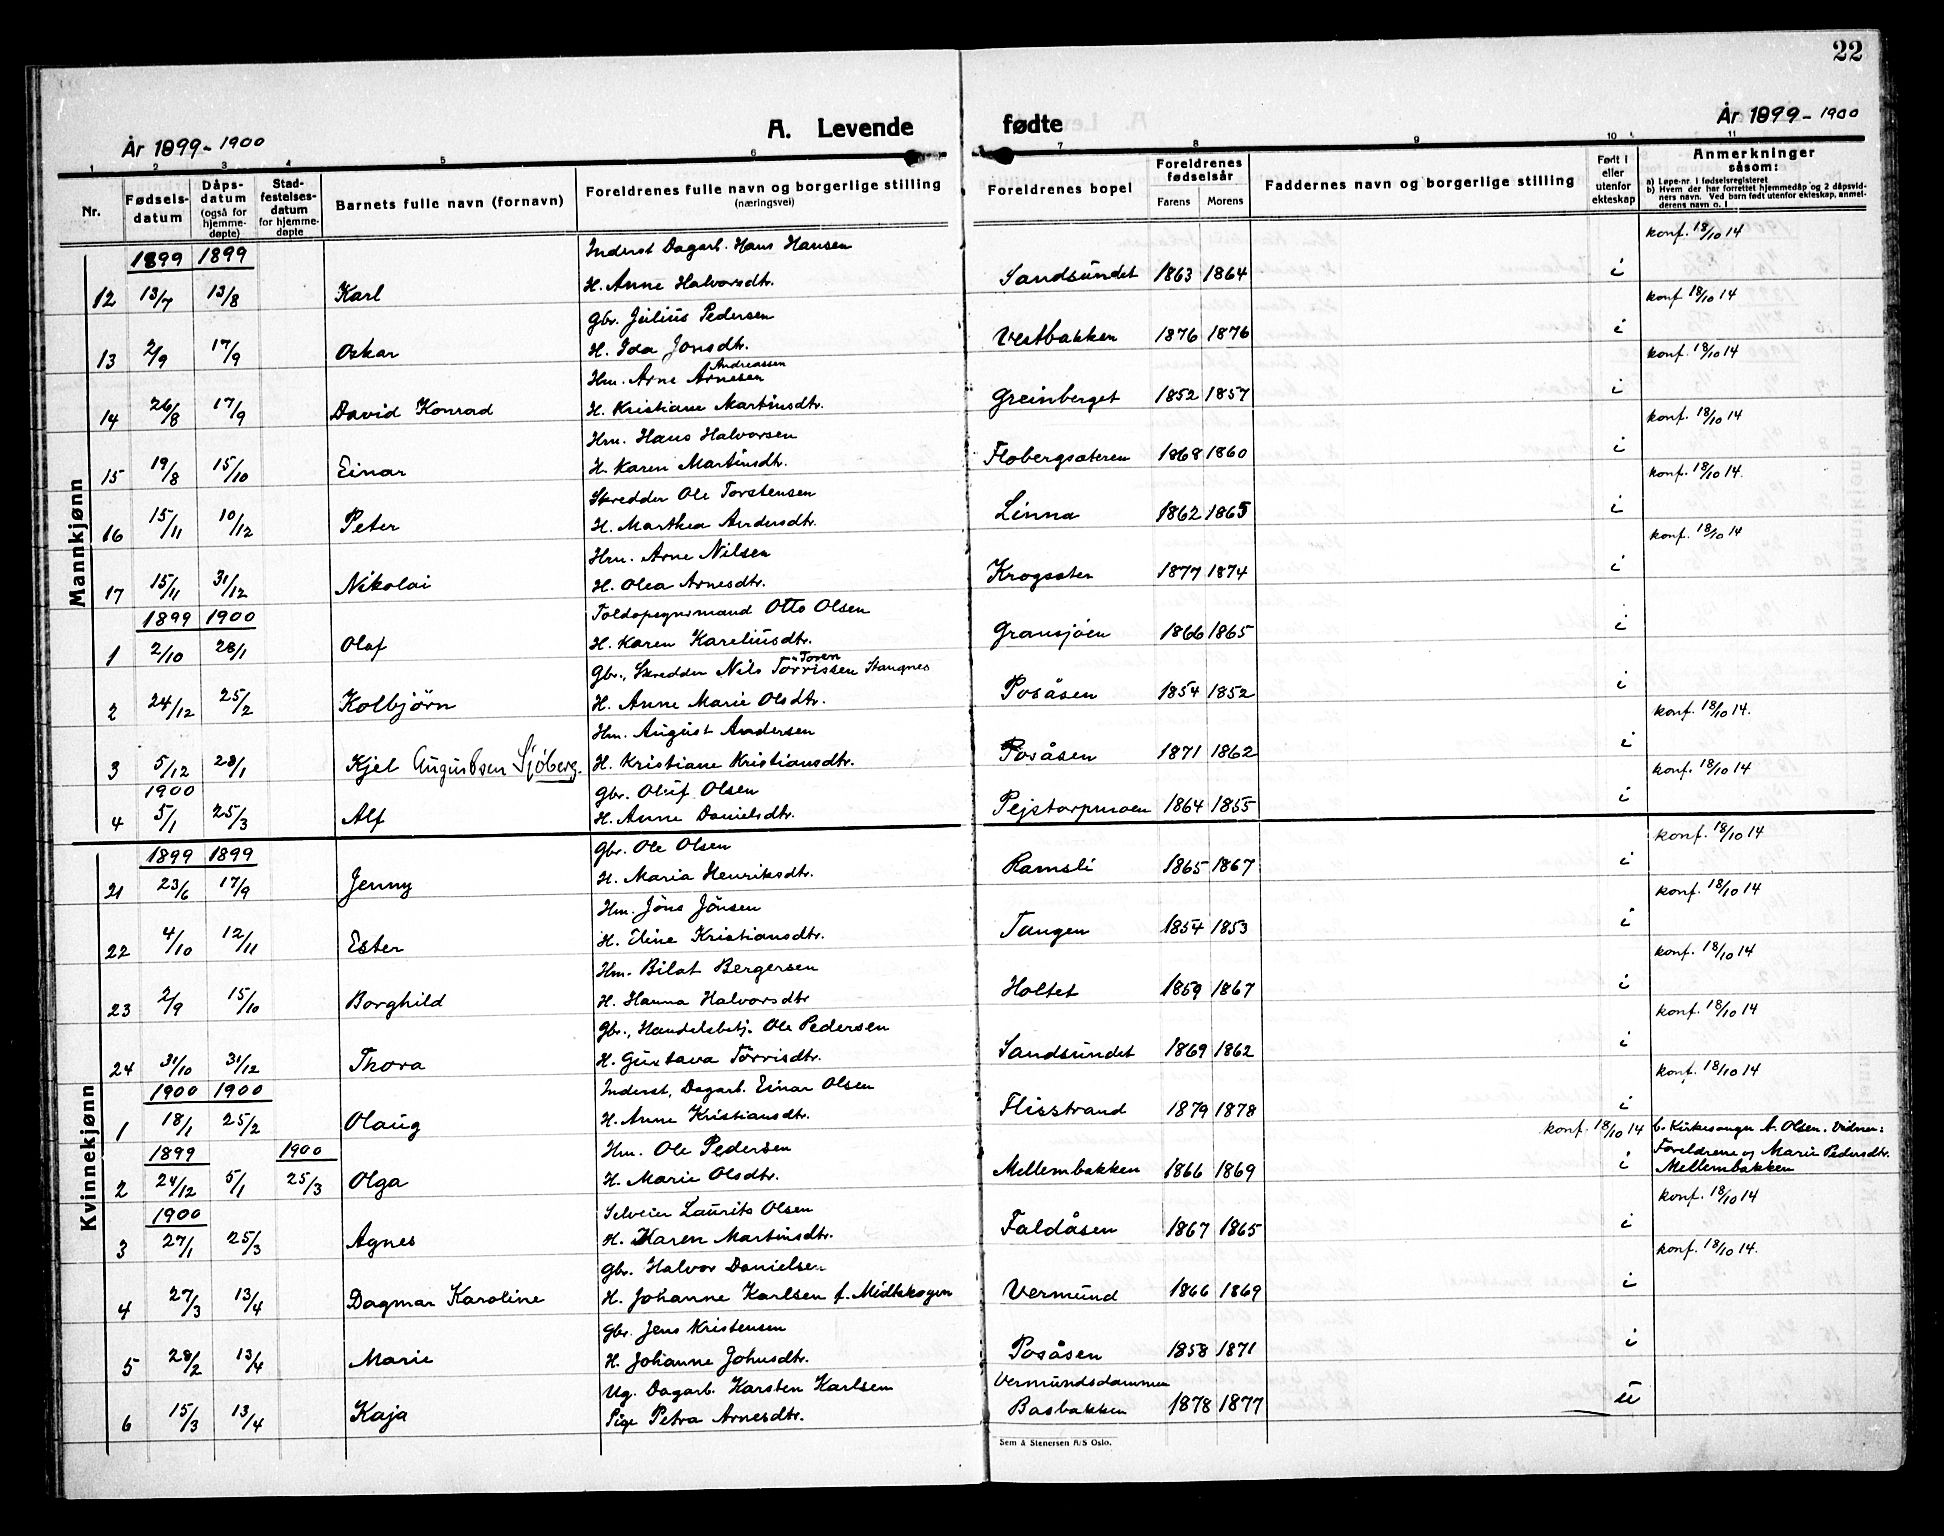 22
År 1899-1900
A. Levende
fødte
År 1899-1900
1 2 3 4 5 6 7 8 9 10 11
Nr.
Fødsels-datum
Dåps-datum (også for hjemme-døpte)
Stad-festelses-datum for hjemme-døpte
Barnets fulle navn (fornavn)
Foreldrenes fulle navn og borgerlige stilling (næringsvei)
Foreldrenes bopel
Foreldrenes fødselsår
Farens Morens
Faddernes navn og borgerlige stilling
Født i eller utenfor ekteskap
Anmerkninger såsom:
a) Løpe-nr. i fødselsregisteret
b) Hvem der har forrettet hjemmedåp og 2 dåpsvidners navn. Ved barn født utenfor ekteskap, anmelderens navn o. l
Mannkjønn
1899 1899
Inderst Dagarb. Hans Hansen konf. 18/10 14
12 13/7 13/8 Karl H. Anne Halvorsdtr. Sandsundet 1863 1864 i
Gbr. Julius Pedersen konf. 18/10 14
13 2/9 17/9 Oskar H. Ida Jonsdtr. Vestbakken 1876 1876 i
Andreassen
Hm. Arne Arnesen konf. 18/10 14
14 26/8 17/9 David Konrad H. Kristiane Martinsdtr. Greinberget 1852 1857 i
Hm. Hans Halvorsen konf. 18/10 14
15 19/8 15/10 Einar H. Karen Martinsdtr. Flobergsæteren 1868 1860 i
Skredder Ole Torstensen konf. 18/10 14.
16 15/11 10/12 Peter H. Marthea Andersdtr. Linna 1862 1865 i
Hm. Arne Nilsen konf. 18/10 14
17 15/11 31/12 Nikolai H. Olea Arnesdtr. Krogsæter 1877 1874 i
1899 1900
Toldopsynsmand Otto Olsen
1 2/10 28/1 Olaf H. Karen Kareliusdtr. Gransjøen 1866 1865 i
Toren
Gbr., Skredder Nils Törrissen Stangnes
2 24/12 25/2 Kolbjörn H. Anne Marie Olsdtr. Posåsen 1854 1852 i
Hm. August Andersen konf. 18/10 14.
3 5/12 28/1 Kjel Augustsen Sjöberg. H. Kristiane Kristiansdtr. Posåsen 1871 1862 i
1900
Gbr. Oluf Olsen konf. 18/10 14
4 5/1 25/3 Alf H. Anne Danielsdtr. Pejstorpmoen 1864 1855 i
Kvinnekjønn
1899 1899
Gbr. Ole Olsen konf. 18/10 14
21 23/6 17/9 Jenny H. Maria Henriksdtr. Ramsli 1865 1867 i
Hm. Jöns Jönsen konf. 18/10 14
22 4/10 12/11 Ester H. Eline Kristiansdtr. Tangen 1854 1853 i
Hm. Bilat Bergersen konf. 18/10 14
23 2/9 15/10 Borghild H. Hanna Halvorsdtr Holtet 1859 1867 i
Gbr., Handelsbetj. Ole Pedersen konf. 18/10 14
24 31/10 31/12 Thora H. Gustava Törrisdtr. Sandsundet 1869 1862 i
1900 1900
Inderst, Dagarb. Einar Olsen konf. 18/10 14
1 18/1 25/2 Olaug H. Anne Kristiansdtr. Flisstrand 1879 1878 i
1899 1900
Hm. Ole Pedersen konf. 18/10 14 b. Kirkesanger A. Olsen. Vidner:
2 24/12 5/1 25/3 Olga H. Marie Olsdtr. Mellembakken 1866 1869 i Foreldrene og Marie Pedersdtr. Mellembakken
1900
Selveier Laurits Olsen konf. 18/10 14
3 27/1 25/3 Agnes H. Karen Martinsdtr. Faldåsen 1867 1865 i
Gbr. Halvor Danielsen konf. 18/10 14.
4 27/3 13/4 Dagmar Karoline H. Johanne Karlsen f. Midtskogen Vermund 1866 1869 i
Gbr. Jens Kristensen
5 28/2 13/4 Marie H. Johanne Johnsdtr. Posåsen 1858 1871 i
Ug. Dagarb. Karsten Karlsen Vermundsdammen
6 15/3 13/4 Kaja Pige Petra Arnesdtr. Basbakken 1878 1877 u
Sem & Stenersen A/S Oslo.